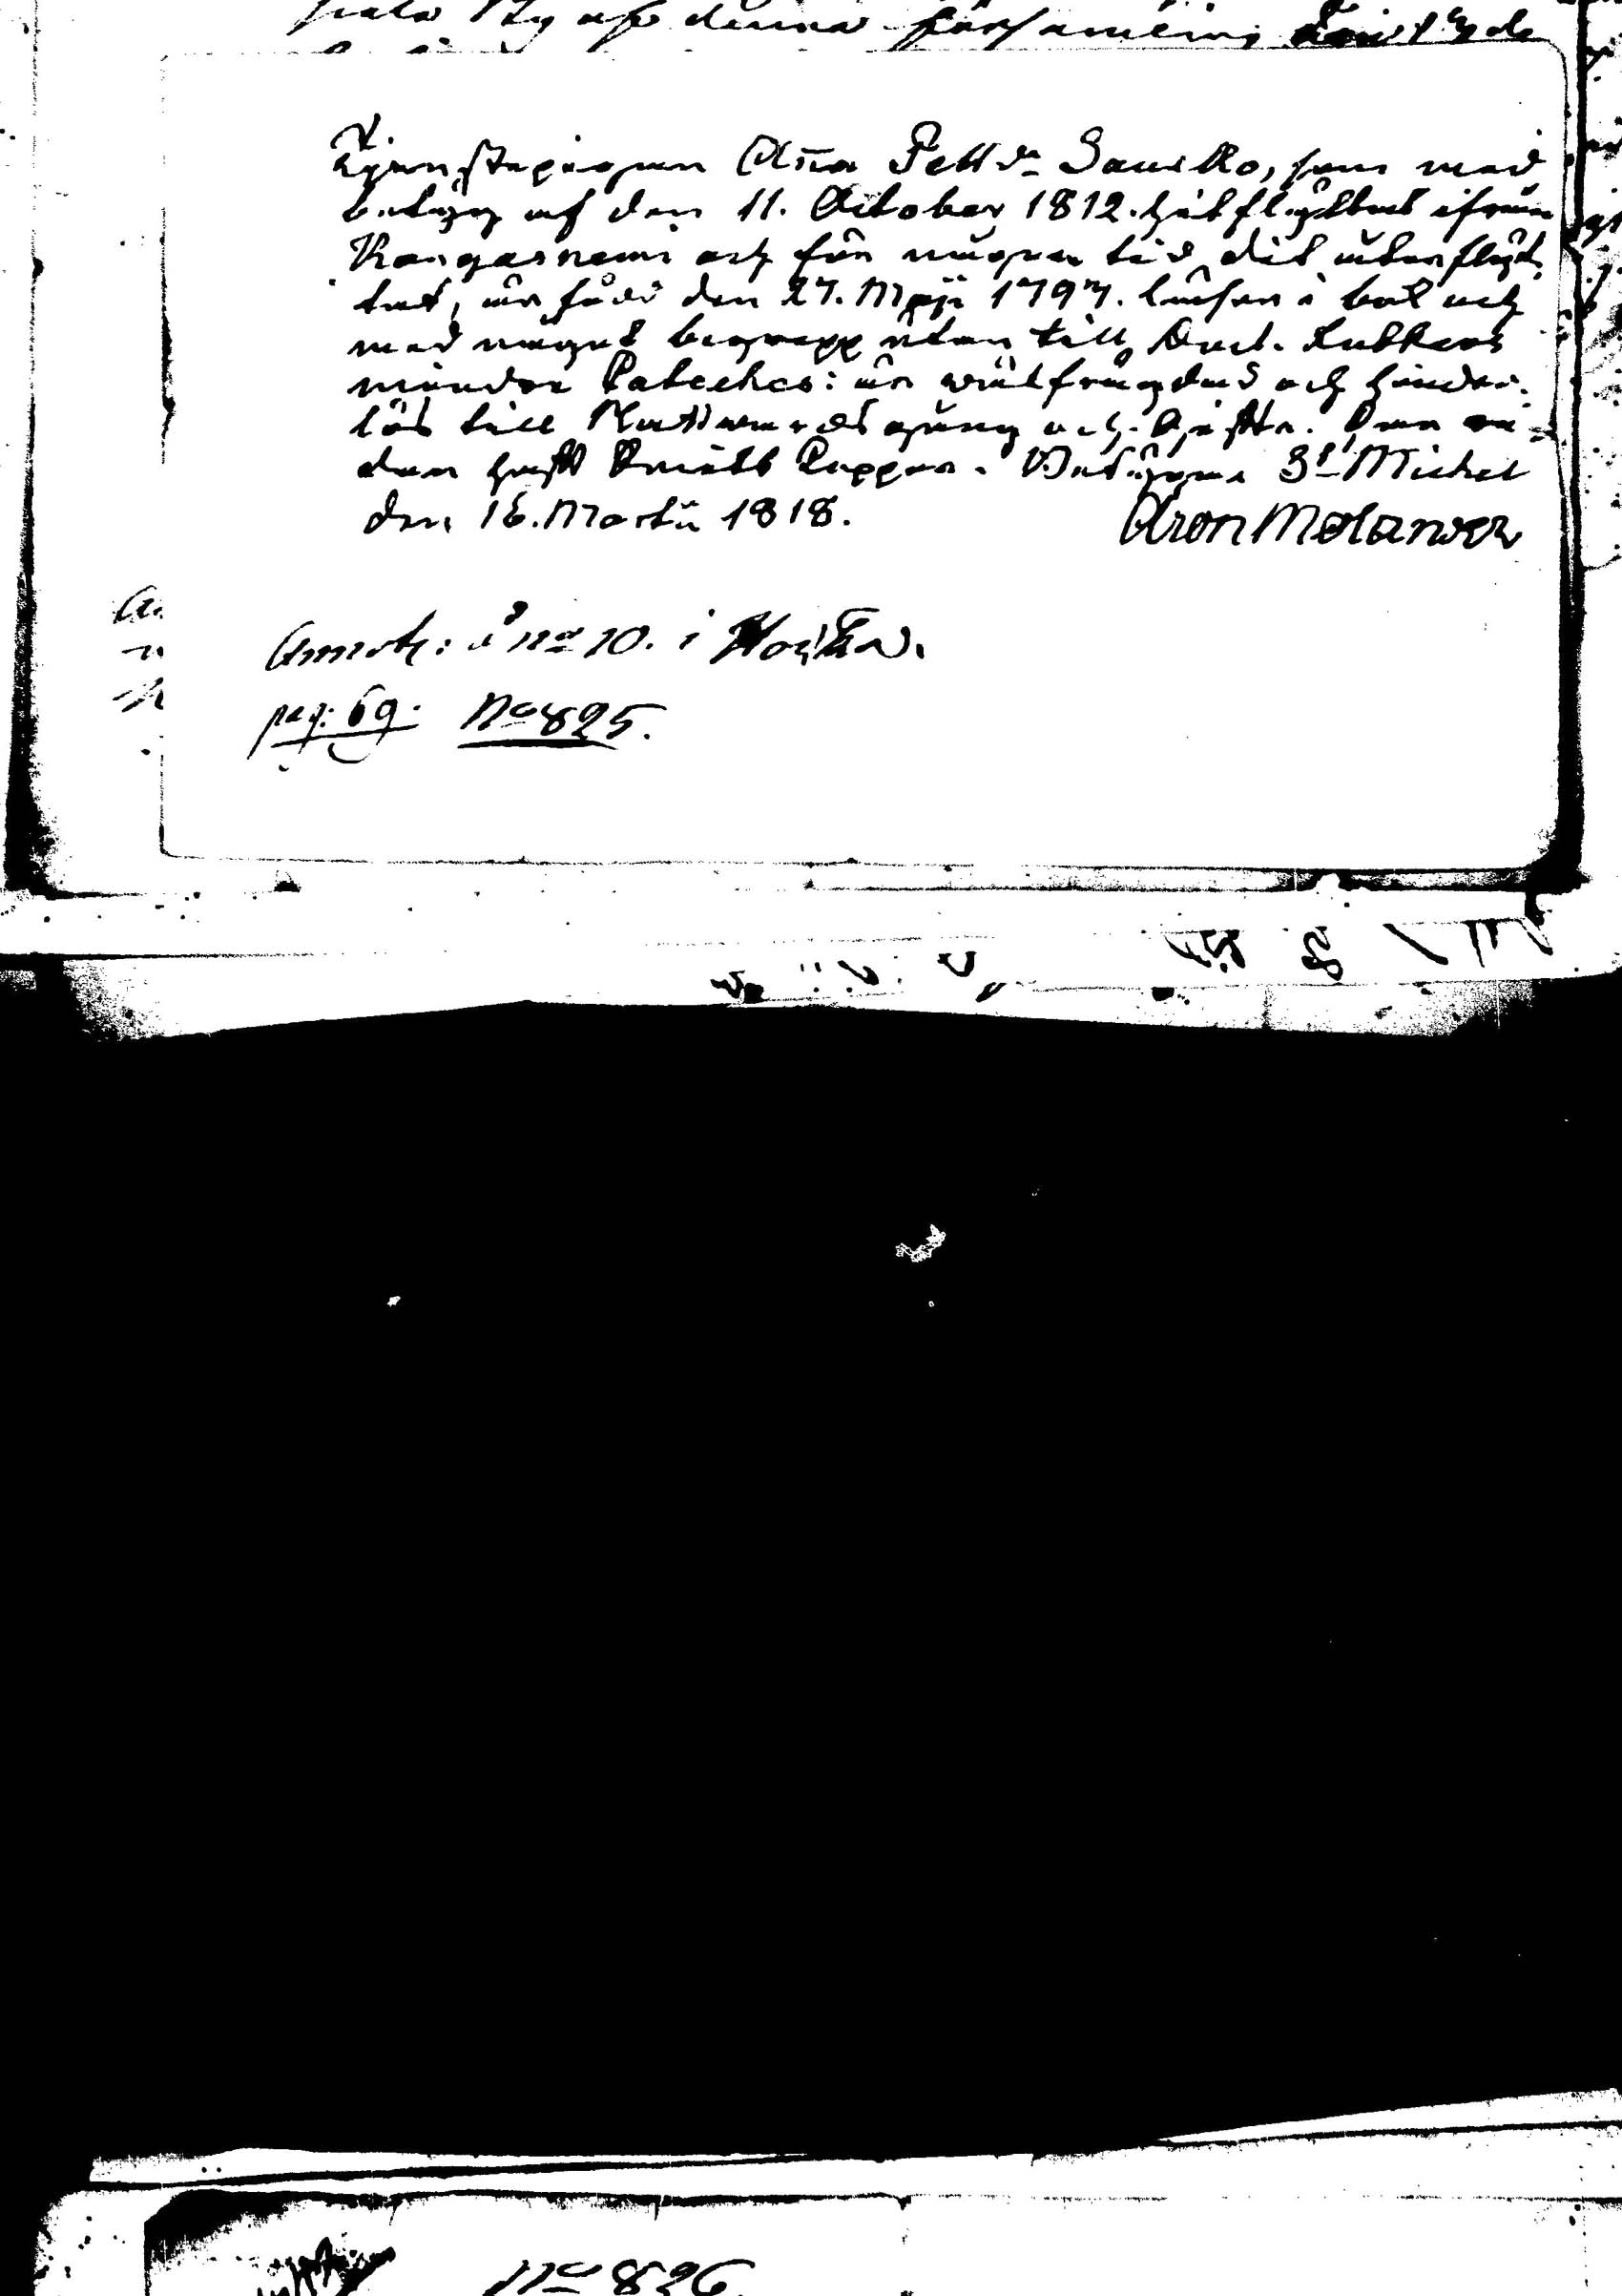 af denna församling
Tjenstepigan Aña Pettdr Sauikko, som med
betyg af den 11. October 1812. hit flyttat ifrån
Kangasniemi och för någon tid dit återflyt-
tat, är född den 27. Maji 1797. läser i bok och
med något begrepp utan till Doct. Lutheri
mindre Cateches: är wälfrägdad och hinder-
lös till Nattwardsgång och Gifte.
den haft Kopper. Betygar St Michel
den 16. Martii 1818. Aron Molander
Annot: å no 10. i Hoikka.
pag: 69. No 825.
No 826.